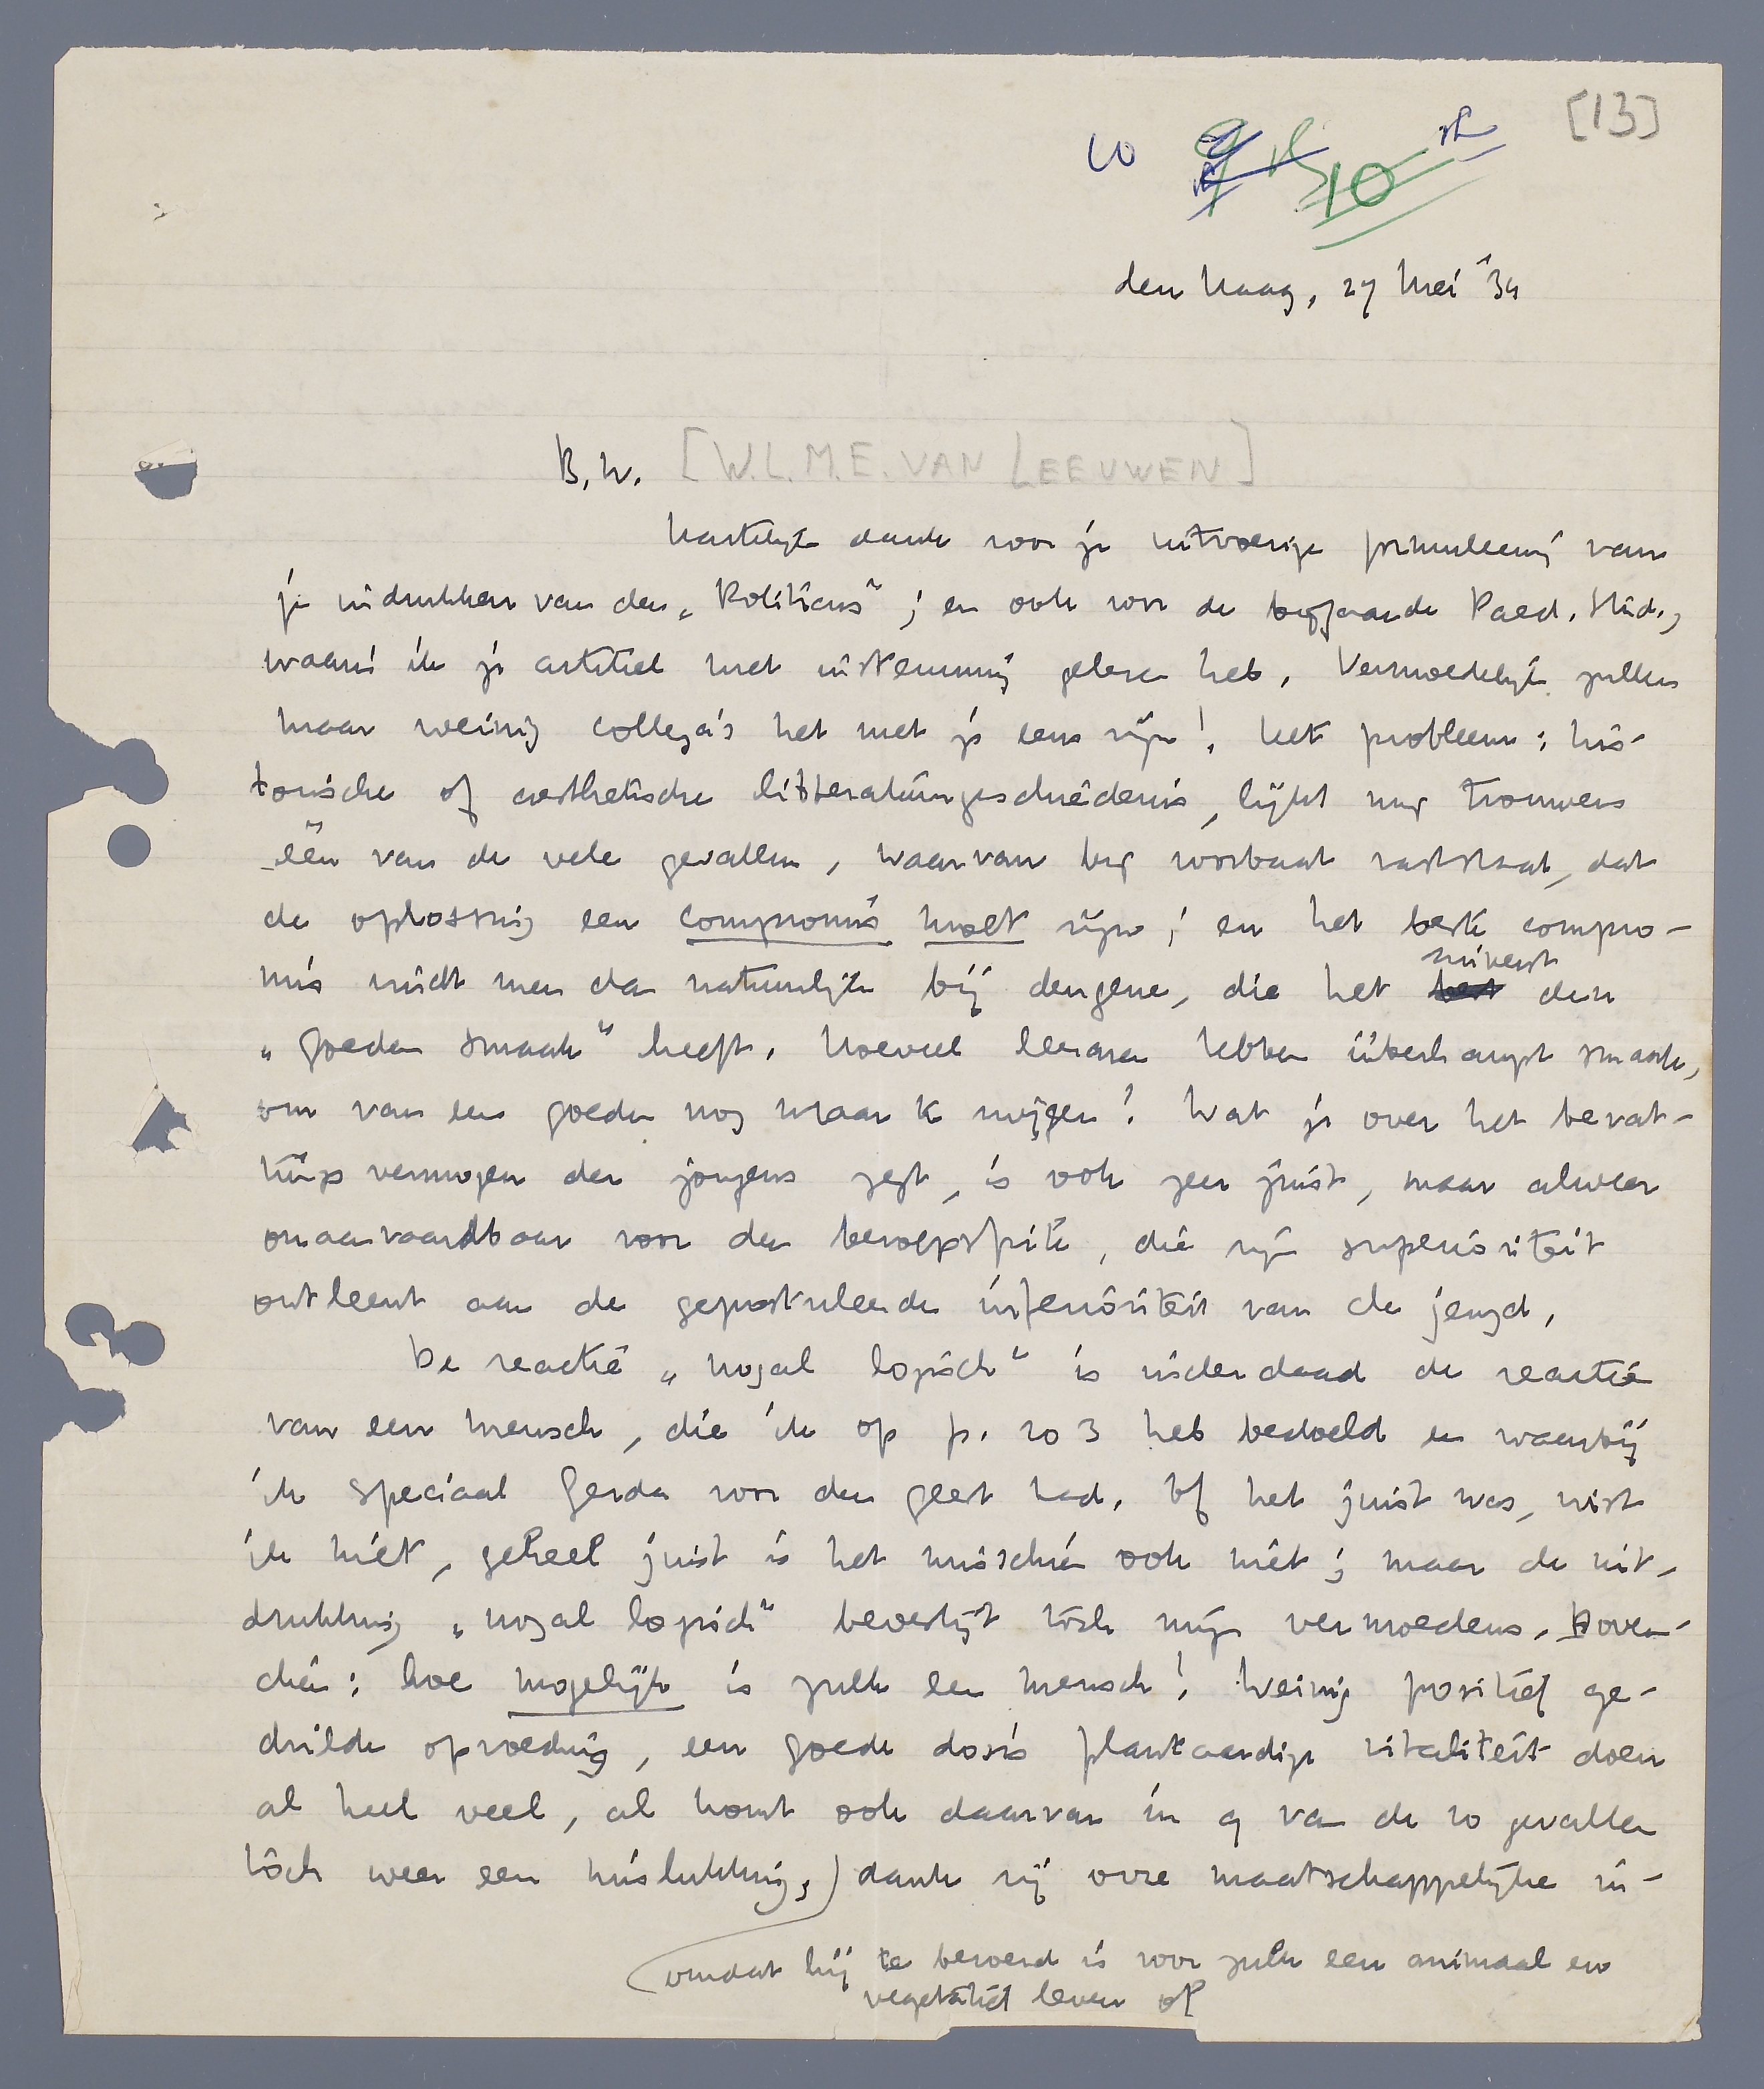 [13]
10
den Haag, 27 Mei '34
B.W. [W.L.M.E. VAN LEEUWEN]
Hartelijk dank voor je uitvoerige formuleering van
je indrukken van den „Politicus”; en ook voor de bijgaande Paed. Stud.,
waarin ik je artikel met instemming gelezen heb. Vermoedelijk zullen
maar weinig collega's het met je eens zijn! Het probleem: his-
torische of aesthetische litteratuurgeschiedenis, lijkt mij trouwens
één van de vele gevallen, waarvan bij voorbaat vaststaat, dat
de oplossing een compromis moet zijn; en het beste compro-
mis vindt men dan natuurlijk bij dengene, die het zuiverst den
„goeden smaak” heeft. Hoeveel leeraren hebben überhaupt smaak,
om van een goeden nog maar te zwijgen! Wat je over het bevat-
tingsvermogen der jongens zegt, is ook zeer juist, maar alweer
onaanvaardbaar voor den beroepsfrik, die zijn superioriteit
ontleent aan de gepostuleerde inferioriteit van de jeugd.
De reactie „nogal logisch” is inderdaad de reactie
van een mensch, die ik op p. 203 heb bedoeld en waarbij
ik speciaal Gerda voor den geest had. Of het juist was, wist
ik niet, geheel juist is het misschien ook niet; maar de uit-
drukking „nogal logisch” bevestigt tòch mijn vermoedens. Boven-
dien: hoe mogelijk is zulk een mensch! Weinig positief ge-
drilde opvoeding, een goede dosis plantaardige vitaliteit doen
al heel veel, al komt ook daarvan in 9 van de 10 gevallen
tòch weer een mislukking, dank zij onze maatschappelijke in-
omdat hij te beroerd is voor zulk een animaal en
vegetatief leven of